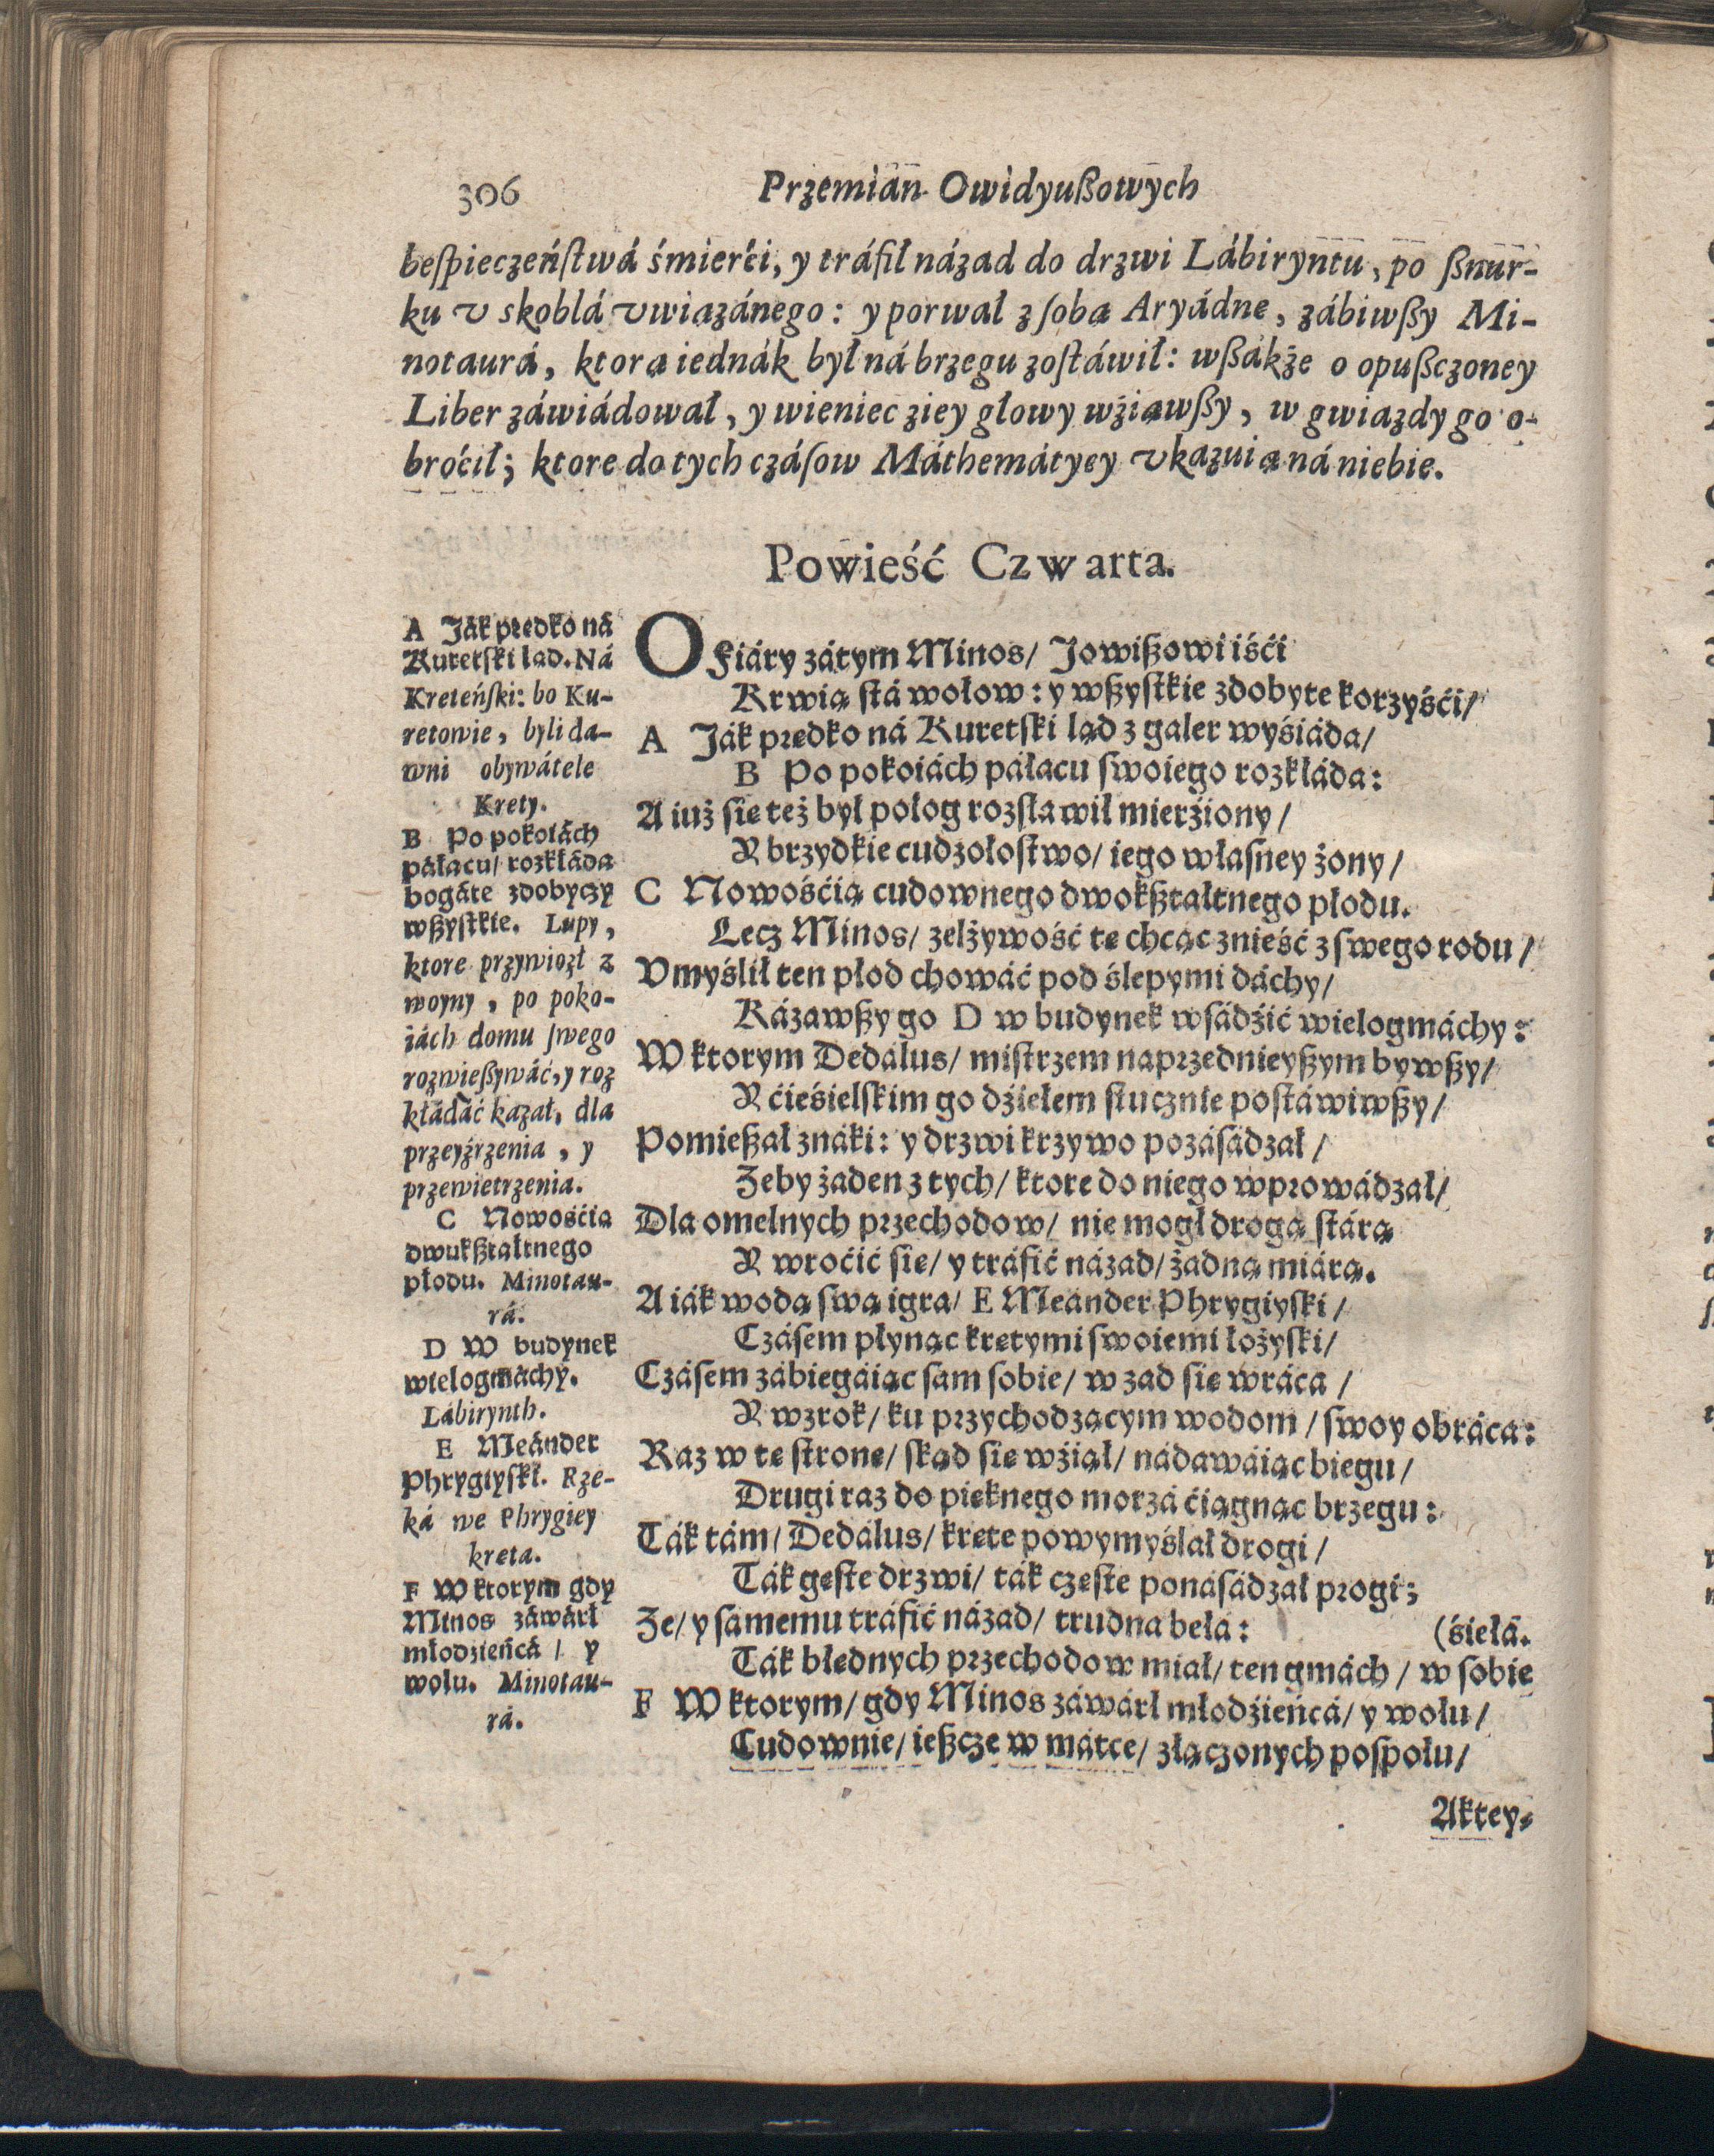 306 Przemian Owidyußowych
beſpieczeńſtwá śmierći, y tráfił názad do drzwi Lábiryntu, po ßnur-
ku v skoblá vwiązánego: y porwał z ſobą Aryádnę, zábiwßy Mi-
notaurá, ktorą iednák był ná brzegu zoſtáwił: wßákże o opußczoney
Liber záwiádował, y wieniec z iey głowy wźiąwßy, w gwiazdy go o-
broćił; ktore do tych czáſow Máthemátycy vkazuią ná niebie.
Powieść Czwarta.
A Ják prędko ná
Kuretſki ląd. Ná
Kreteńſki: bo Ku-
retowie, byli da-
wni obywátele
Krety.
B Po pokoiách
páłacu/ rozkłáda
bogáte zdobyczy
wßyſtkie. Lupy,
ktore przywiozł z
woyny, po poko-
iách domu ſwego
rozwießywáć, y roz
kłádáć kazał, dla
przeyźrzenia, y
przewietrzenia.
C Nowośćią
dwukßtałtnego
płodu. Minotau-
rá.
D W budynek
wielogmáchy.
Lábirynth.
E Meánder
Phrygiyſki. Rze-
ká we Phrygiey
kręta.
F W ktorym gdy
Minos záwárł
młodzieńcá / y
wołu. Minotau-
rá.
OFiáry zátym Minos/ Jowißowi iśći
Krwią ſtá wołow: y wßyſtkie zdobyte korzyśći/
A Ják prędko ná Kuretſki ląd z galer wyśiáda/
B Po pokoiách páłacu ſwoiego rozkłáda:
A iuż ſię też był połog rozſławił mierźiony/
Y brzydkie cudzołoſtwo/ iego właſney żony/
C Nowośćią cudownego dwokßtałtnego płodu.
Lecz Minos/ zelżywość tę chcąc znieść z ſwego rodu/
Vmyślił ten płod chowáć pod ślepymi dáchy/
Kázawßy go D w budynek wſádźić wielogmáchy:
W ktorym Dedálus/ miſtrzem naprzednieyßym bywßy/
Y ćieśielſkim go dźiełem ſtucznie poſtáwiwßy/
Pomießał znáki: y drzwi krzywo pozáſádzał/
Zeby żaden z tych/ ktore do niego wprowádzał/
Dla omelnych przechodow/ nie mogł drogą ſtárą
Y wroćić ſię/ y tráfić názad/ żadną miárą.
A iák wodą ſwą igra/ E Meánder Phrygiyſki/
Czáſem płynąc krętymi ſwoiemi łożyſki/
Czáſem zábiegáiąc ſam ſobie/ w zad ſię wráca/
Y wzrok/ ku przychodzącym wodom/ ſwoy obráca:
Raz w tę ſtronę/ ſkąd ſię wźiął/ nádawáiąc biegu/
Drugi raz do pięknego morzá ćiągnąc brzegu:
Ták tám/ Dedálus/ kręte powymyślał drogi/
Ták gęſte drzwi/ ták częſte ponáſádzał progi;
Ze/ y ſámemu tráfić názad/ trudna beła: (śiełá.
Ták błędnych przechodow miał/ ten gmách/ w ſobie
F W ktorym/ gdy Minos záwárł młodźieńcá/ y wołu/
Cudownie/ ießcze w mátce/ złączonych poſpołu/
Aktey-